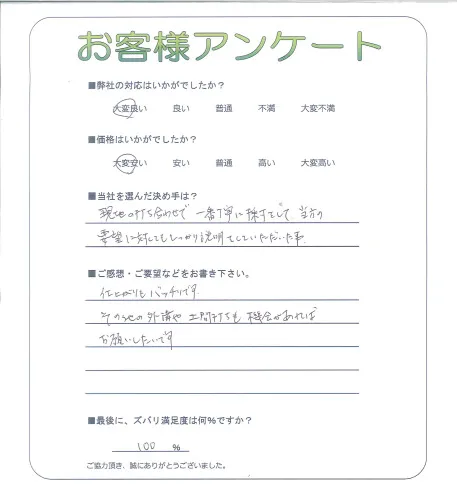 お客様アンケート
■弊社の対応はいかがでしたか？
大変良い 良い 普通 不満 大変不満
■価格はいかがでしたか？
大変安い 安い 普通 高い 大変高い
■当社を選んだ決め手は？
現地の打ち合わせで一番丁寧に探寸をして、当方の
要望に対してもしっかり説明をしていただいた事。
■ご感想・ご要望などをお書き下さい。
仕上がりもバッチリです。
その他の外構や土間打ちも機会があれば
お願いしたいです
■最後に、ズバリ満足度は何％ですか？
100 ％
ご協力頂き、誠にありがとうございました。